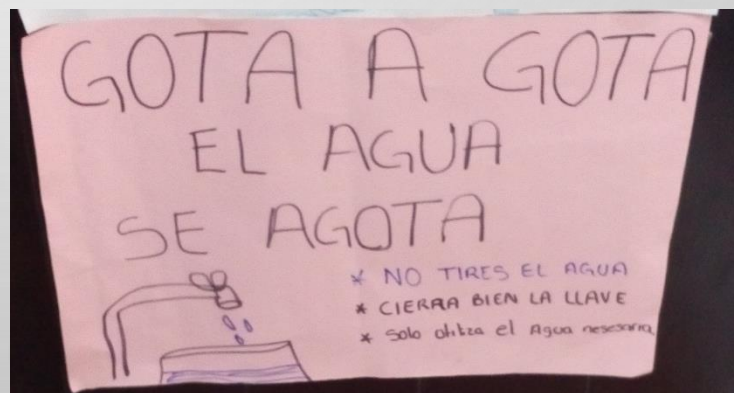 GOTA A GOTA
EL AGUA
SE AGOTA
* NO TIRES EL AGUA
* CIERRA BIEN LA LLAVE
* Solo utiliza el Agua nesesaria